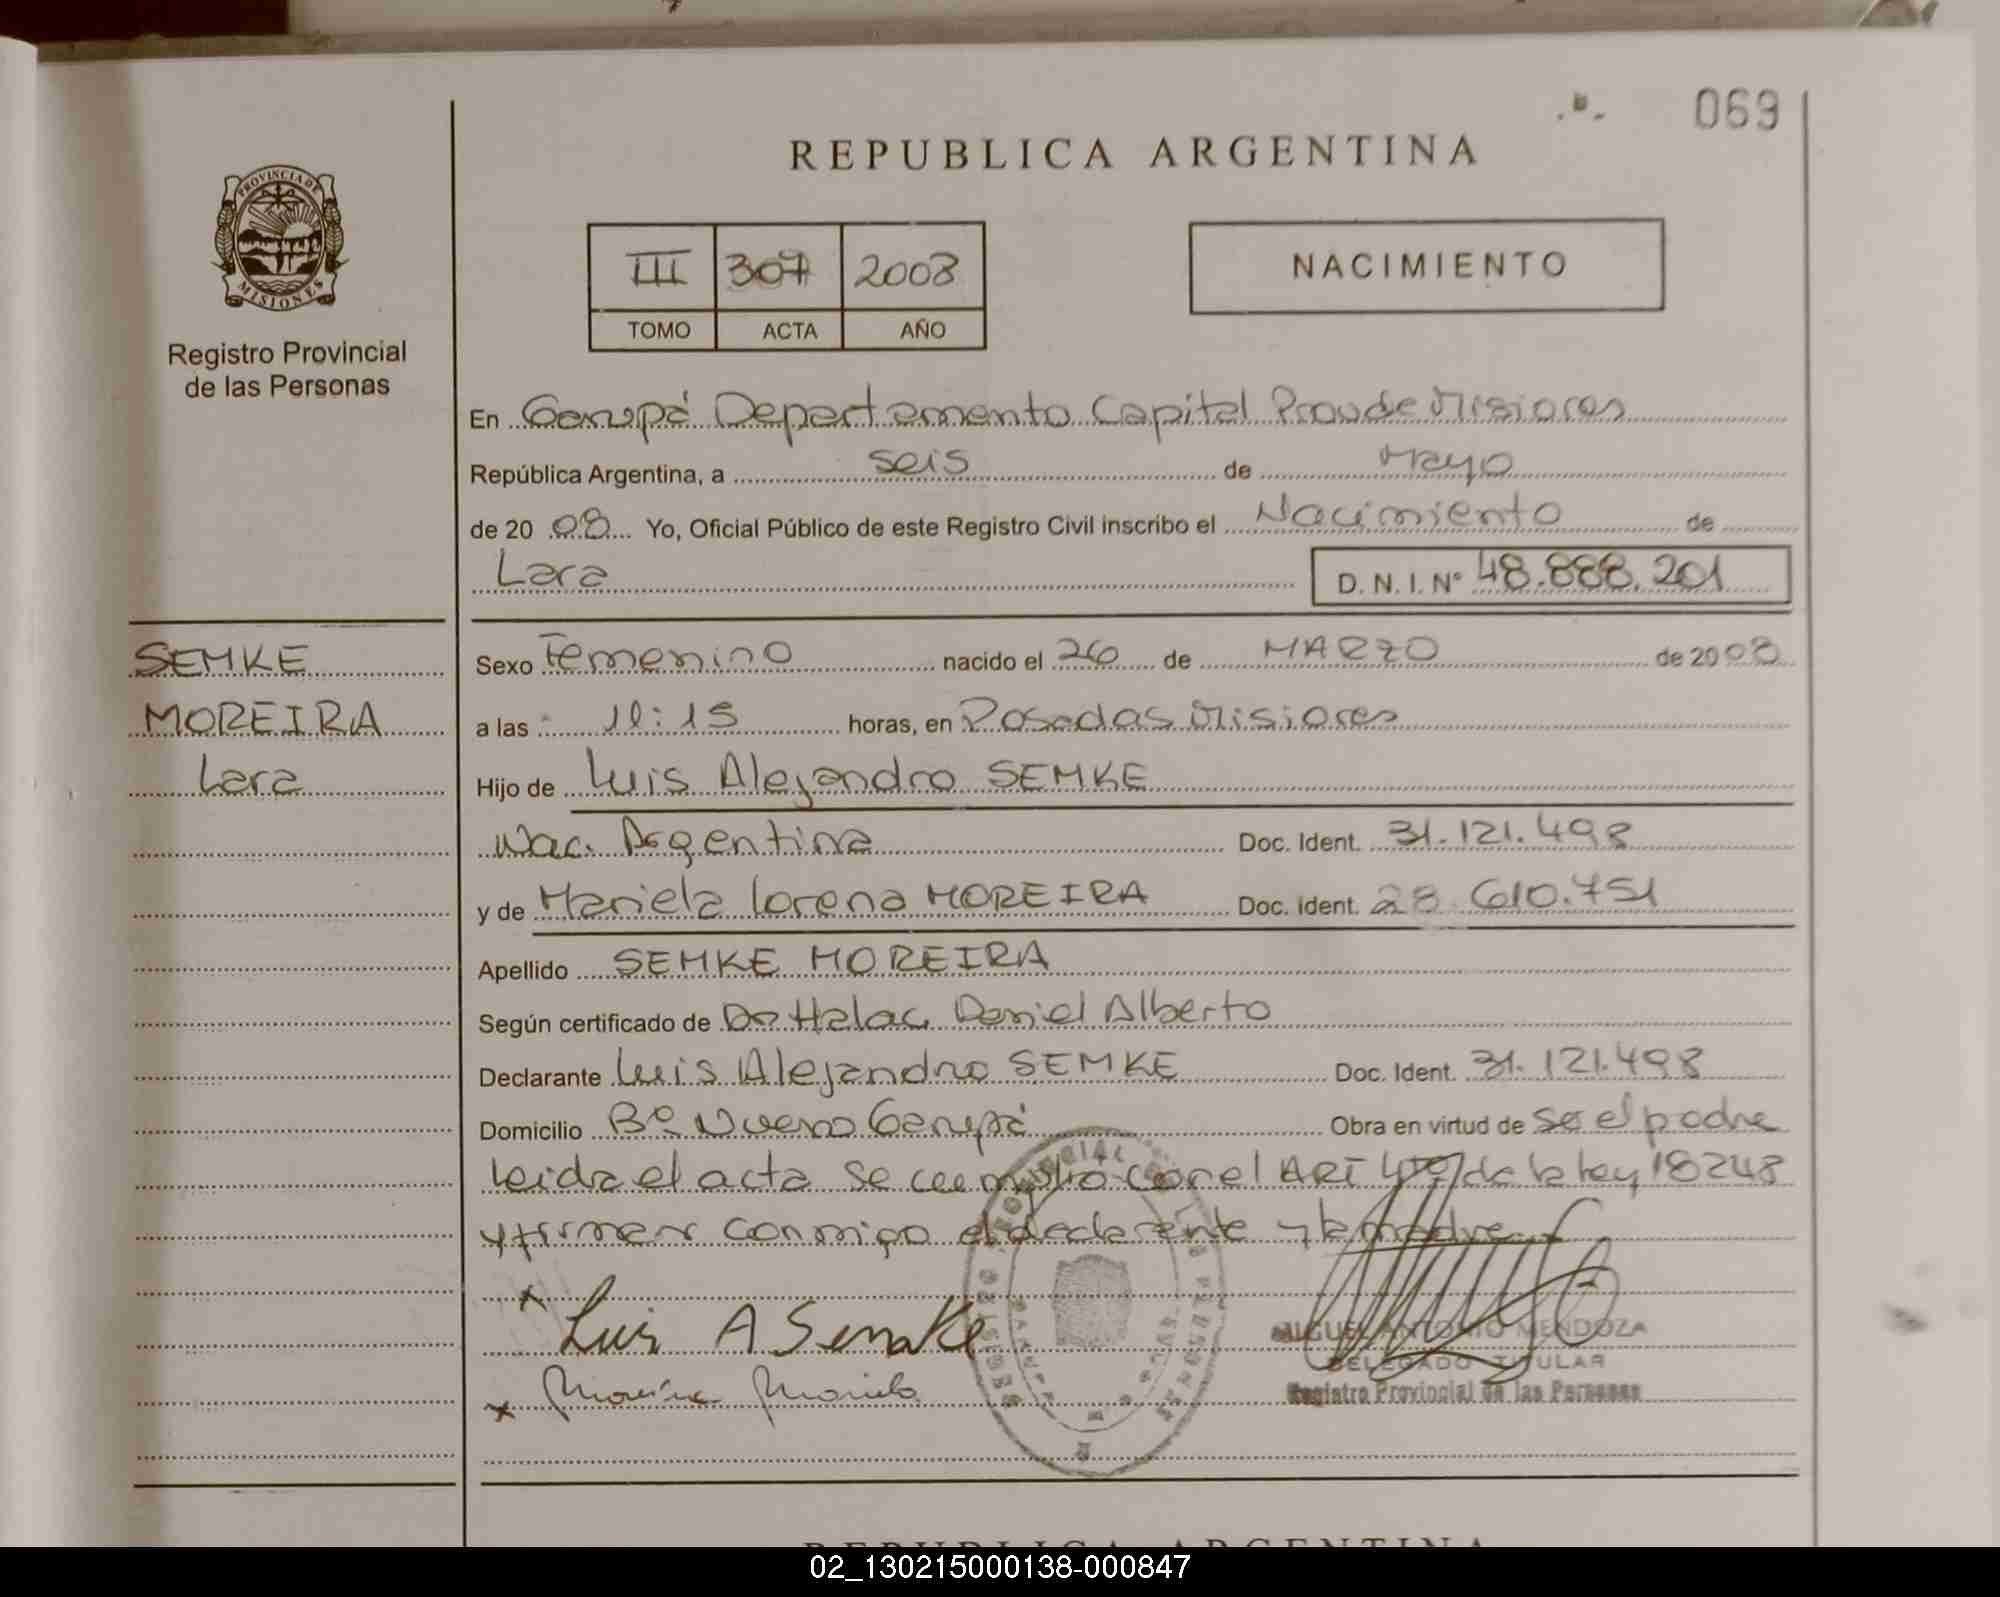 069
REPUBLICA ARGENTINA
PROVINCIA DE
MISIONES
Registro Provincial
de las Personas
III 307 2008
TOMO ACTA AÑO
NACIMIENTO
En Garupá Departamento Capital Prov de Misiones
República Argentina, a seis de Mayo
de 20 08 Yo, Oficial Público de este Registro Civil inscribo el Nacimiento de
Lara D. N. I. N° 48.888.201
SEMKE
MOREIRA
Lara
Sexo Femenino nacido el 26 de MARZO de 2008
a las 11:15 horas, en Posadas Misiones
Hijo de Luis Alejandro SEMKE
Nac. Argentina Doc. Ident. 31.121.498
y de Mariela Lorena MOREIRA Doc. Ident. 28.610.751
Apellido SEMKE MOREIRA
Según certificado de Dr Halac, Daniel Alberto
Declarante Luis Alejandro SEMKE Doc. Ident. 31.121.498
Domicilio Bº Nuevo Garupá Obra en virtud de ser el padre
leida el acta se cumplio con el ART 4to de la ley 18248
y firman conmigo el declarante y la madre
x Luis A Semke
x Moreira Mariela
MIGUEL ANTONIO MENDOZA
DELEGADO TITULAR
Registro Provincial de las Personas
REPUBLICA ARGENTINA
02_130215000138-000847